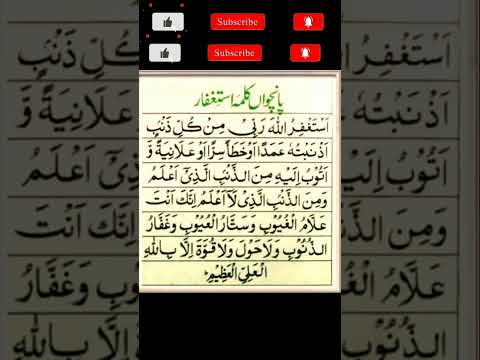 Subscribe
Subscribe
پانچواں کلمہ استغفار
اَسْتَغْفِرُ اللهَ رَبِّیْ مِنْ کُلِّ ذَنْۢبٍ
اَذْنَبْتُهٗ عَمَدًا اَوْخَطَأً سِرًّا اَوْعَلَانِیَةً وَّ
اَتُوْبُ اِلَیْهِ مِنَ الذَّنْۢبِ الَّذِیْٓ اَعْلَمُ
وَمِنَ الذَّنْۢبِ الَّذِیْ لَآ اَعْلَمُ اِنَّكَ اَنْتَ
عَلَّامُ الْغُیُوْبِ وَسَتَّارُ الْعُیُوْبِ وَغَفَّارُ
الذُّنُوْبِ وَلَاحَوْلَ وَلَاقُوَّةَ اِلَّا بِاللهِ
الْعَلِیِّ الْعَظِیْمِؕ